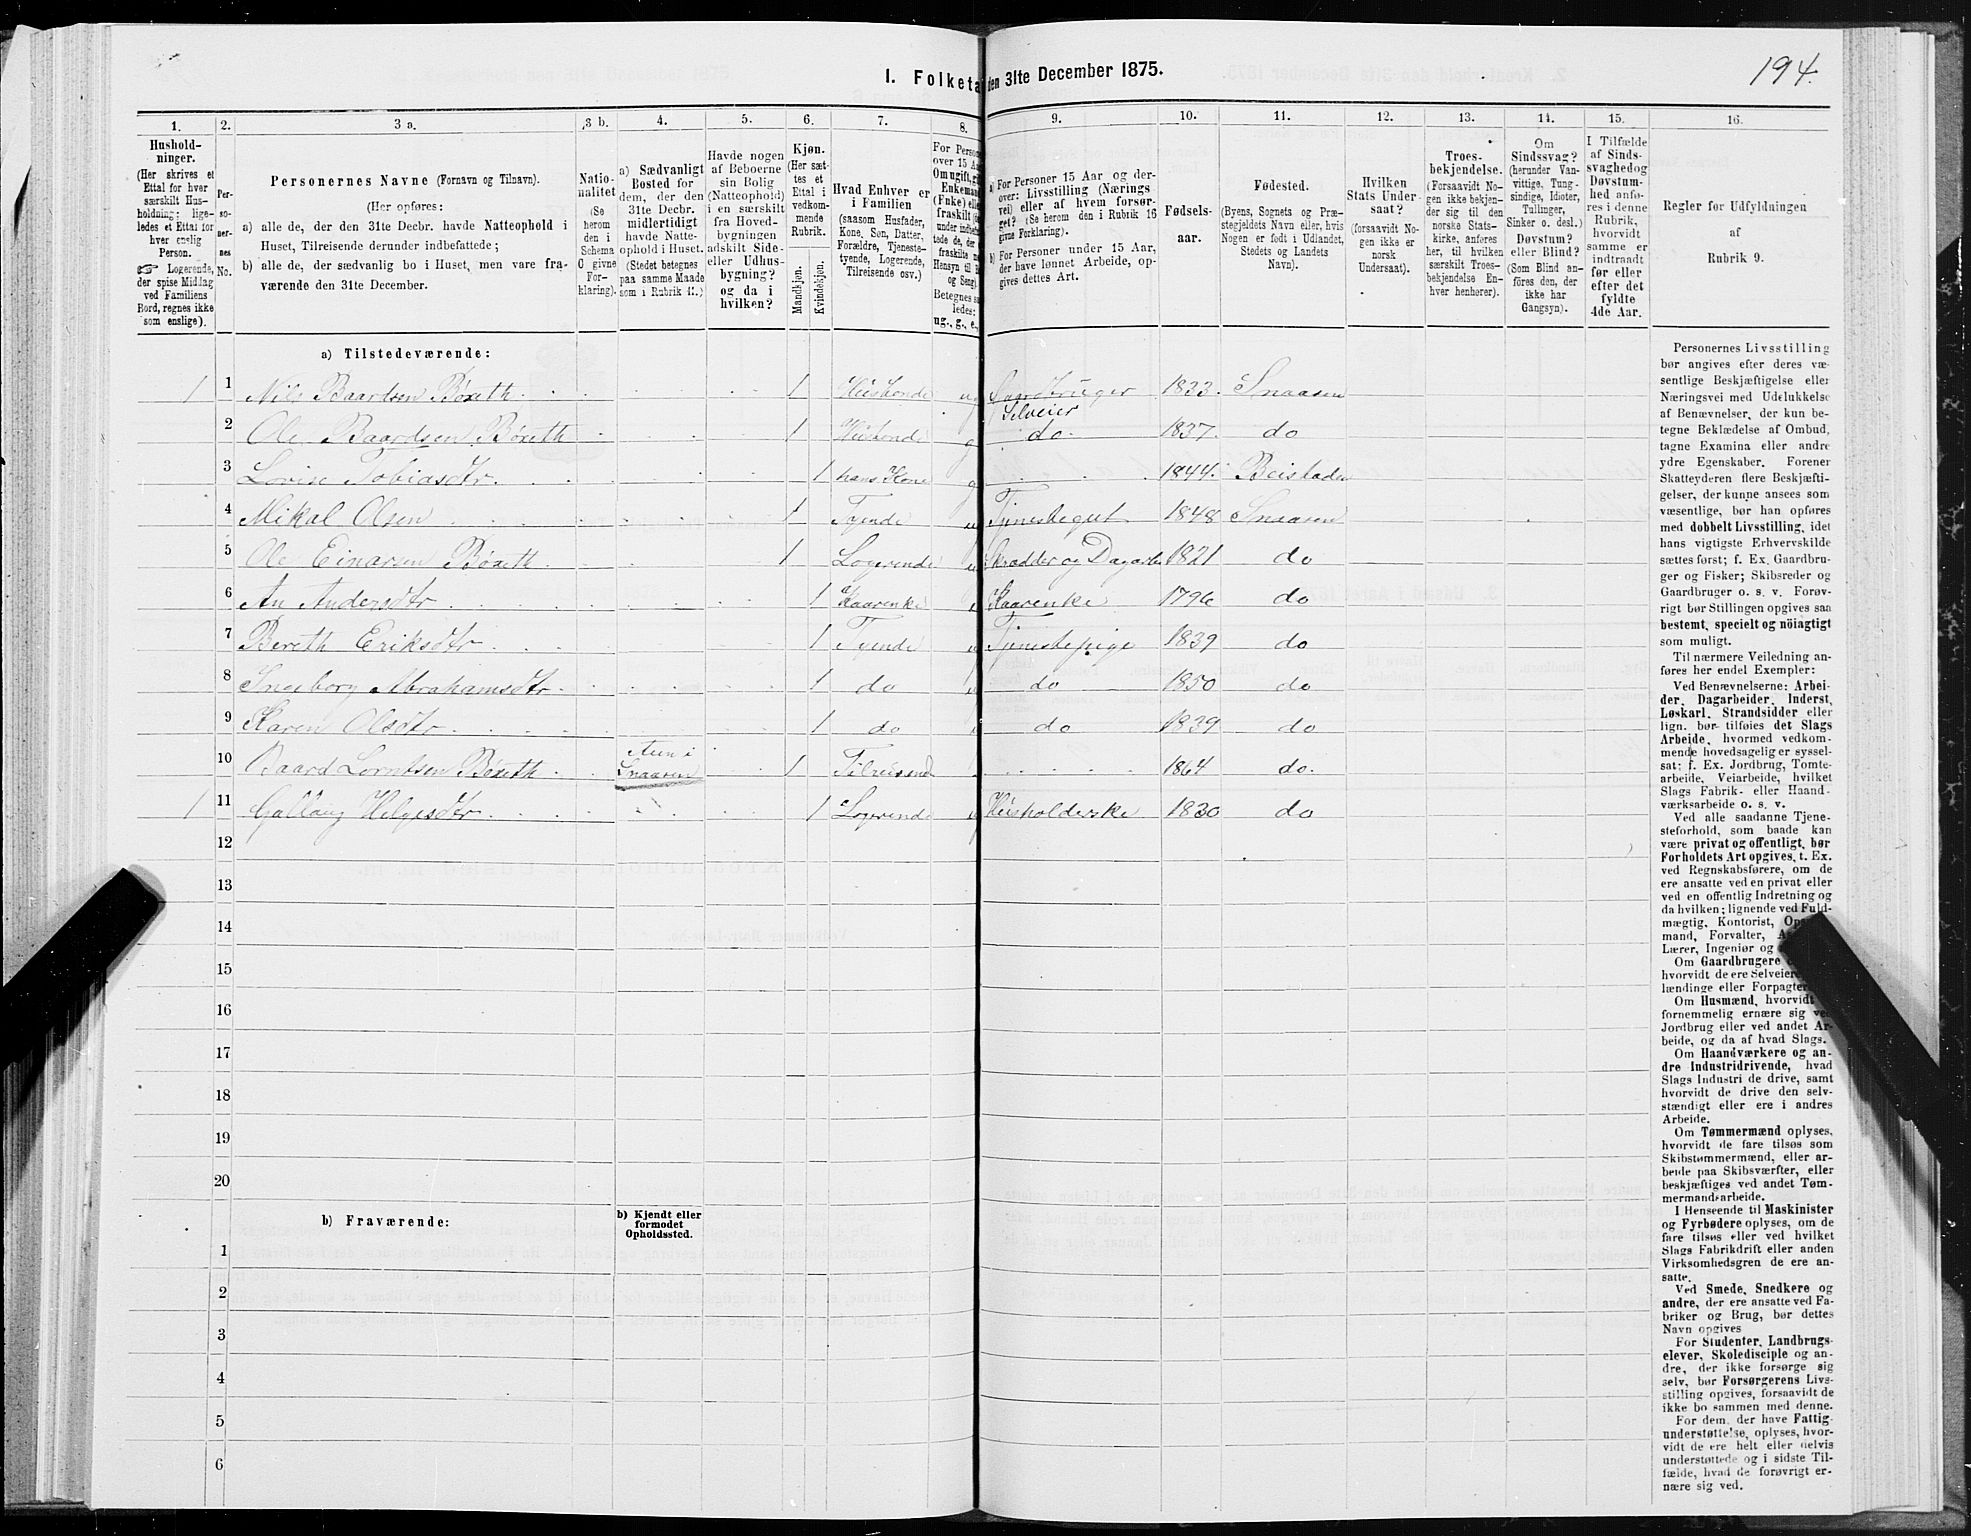 I. Folketa den 31te December 1875.
194.
1. 2. 3 a. 3 b. 4. 5. 6. 7. 8. 9. 10. 11. 12. 13. 14. 15. 16.
Hushold-
ninger.
(Her skrives et
Ettal for hver
særskilt Hus-
holdning; lige-
ledes et Ettal for
hver enslig
Person.
☞ Logerende,
der spise Middag
ved Familiens
Bord, regnes ikke
som enslige).
Per-
so-
ner-
nes
No.
Personernes Navne (Fornavn og Tilnavn).
(Her opføres:
a) alle de, der den 31te Decbr. havde Natteophold i
Huset, Tilreisende derunder indbefattede;
b) alle de, der sædvanlig bo i Huset, men vare fra-
værende den 31te December.
Natio-
nalitet
(Se
herom
den i
Schema
O givne
For-
klaring).
a) Sædvanligt
Bosted for
dem, der den
31te Decbr.
midlertidigt
havde Natte-
ophold i Huset.
(Stedet betegnes
paa samme Maade
som i Rubrik 11.)
Havde nogen
af Beboerne
sin Bolig
(Natteophold)
i en særskilt
fra Hoved-
bygningen
adskilt Side-
eller Udhus-
bygning?
og da i
hvilken?
Kjøn.
(Her sæt-
tes et
Ettal i
vedkom-
mende
Rubrik.
Mandkjøn.
Kvindekjøn.
Hvad Enhver er
i Familien
(saasom Husfader,
Kone, Søn, Datter,
Forældre, Tjeneste-
tyende, Logerende,
Tilreisende osv.)
For Person
over 15 Aa
Om ugift, gi
Enkemand
(Enke) elle
fraskilt
Betegnes sa
ledes:
ug., g., e.,
a) For Personer 15 Aar og der-
over: Livsstilling (Nærings
vei) eller af hvem forsør-
get? (Se herom den i Rubrik 16
givne Forklaring).
b) For Personer under 15 Aar,
der have lønnet Arbeide, op-
gives dettes Art.
Fødsels-
aar.
Fødested.
(Byens, Sognets og Præ-
stegjeldets Navn eller, hvis
Nogen er født i Udlandet,
Stedets og Landets
Navn).
Hvilken
Stats Under-
saat?
(forsaavidt No-
gen ikke er
norsk
Undersaat).
Troes-
bekjendelse.
(Forsaavidt No-
gen ikke bekjen-
der sig til den
norske Stats-
kirke, anføres
her, til hvilken
særskilt Troes-
bekjendelse En-
hver henhører).
Om
Sindssvag?
(herunder Van-
vittige, Tung-
sindige, Idioter,
Tullinger,
Sinker o. desl.)
Døvstum?
eller Blind?
(Som Blind an-
føres den, der
ikke har
Gangsyn).
I Tilfælde
af Sinds-
svaghedog
Døvstum-
hed anfø-
res i denne
Rubrik,
hvorvidt
samme er
indtraadt
før eller
efter det
fyldte
4de Aar.
Regler for Udfyldningen
af
Rubrik 9.
a) Tilstedeværende:
1 1 Nils Baardsen Bøseth 1 Huusbonde ug Gaardbruger Selveier 1833 Snaasen
2 Ole Baardsen Bøseth 1 Huusbonde g do 1837 do
3 Lovise Tobiasdtr 1 hans Kone g 1844 Beistaden
4 Mikal Olsen 1 Tyende Tjenestegut 1848 Snaasen
5 Ole Einarsen Bøseth 1 Logerende Skrædder og Dagarb 1821 do
6 An Andersdtr 1 Kaarenke Kaarenke 1796 do
7 Bereth Eriksdtr 1 Tyende Tjenestepige 1839 do
8 Ingeborg Abrahamsdtr 1 do do 1850 do
9 Karen Olsdtr 1 do do 1839 do
10 Baard Lorntsen Bøseth Aun i Snaasen 1 Tilreisende 1864 do
1 11 Gallaug Helgesdtr 1 Logerende Husholderske 1830 do
12
13
14
15
16
17
18
19
20
b) Fraværende:
b) Kjendt eller
formodet
Opholdssted.
1
2
3
4
5
6
Personernes Livsstilling
bør angives efter deres væ-
sentlige Beskjæftigelse eller
Næringsvei med Udelukkelse
af Benævnelser, der kun be-
tegne Beklædelse af Ombud,
tagne Examina eller andre
ydre Egenskaber. Forener
Skatteyderen flere Beskjæfti-
gelser, der kunne ansees som
væsentlige, bør han opføres
med dobbelt Livsstilling, idet
hans vigtigste Erhvervskilde
sættes først; f. Ex. Gaardbru-
ger og Fisker; Skibsreder og
Gaardbruger o. s. v. Forøv-
rigt bør Stillingen opgives saa
bestemt, specielt og nöiagtigt
som muligt.
Til nærmere Veiledning an-
føres her endel Exempler:
Ved Benævnelserne: Arbei-
der, Dagarbeider, Inderst,
Løskarl, Strandsidder eller
lign. bør tilføies det Slags
Arbeide, hvormed vedkom-
mende hovedsagelig er syssel-
sat; f. Ex. Jordbrug, Tomte-
arbeide, Veiarbeide, hvilket
Slags Fabrik- eller Haand-
værksarbeide o. s. v.
Ved alle saadanne Tjene-
steforhold, som baade kan
være privat og offentligt, bør
Forholdets Art opgives, t. Ex.
ved Regnskabsførere, om de
ere ansatte ved en privat eller
ved en offentlig Indretning og
da hvilken; lignende ved Fuld-
mægtig, Kontorist,
mand, Forvalter,
Lærer, Ingeniør og
Om Gaardbrugere
hvorvidt de ere Selveiere,
lændinge eller Forpagtere.
Om Husmænd, hvorvidt
fornemmelig ernære sig ved
Jordbrug eller ved andet Ar-
beide, og da af hvad Slags.
Om Haandværkere og an-
dre Industridrivende, hvad
Slags Industri de drive, samt
hvorvidt de drive den selv-
stændigt eller ere i andres
Arbeide.
Om Tømmermænd oplyses,
hvorvidt de fare tilsøs som
Skibstømmermænd, eller ar-
beide paa Skibsværfter, eller
beskjæftiges ved andet Tøm-
mermandsarbeide.
I Henseende til Maskinister
og Fyrbødere oplyses, om de
fare tilsøs eller ved hvilket
Slags Fabrikdrift eller anden
Virksomhedsgren de ere an-
satte.
Ved Smede, Snedkere og
andre, der ere ansatte ved Fa-
briker og Brug, bør dettes
Navn opgives
For Studenter, Landbrugs-
elever, Skoledisciple og an-
dre, der ikke forsørge sig
selv, bør Forsørgerens Livs-
stilling opgives, forsaavidt de
ikke bo sammen med denne.
For dem, der have Fattig-
understøttelse, oplyses, hvor-
vidt de ere helt eller delvis
understøttede og i sidste Til-
fælde, hvad de forøvrigt er-
nære sig ved.